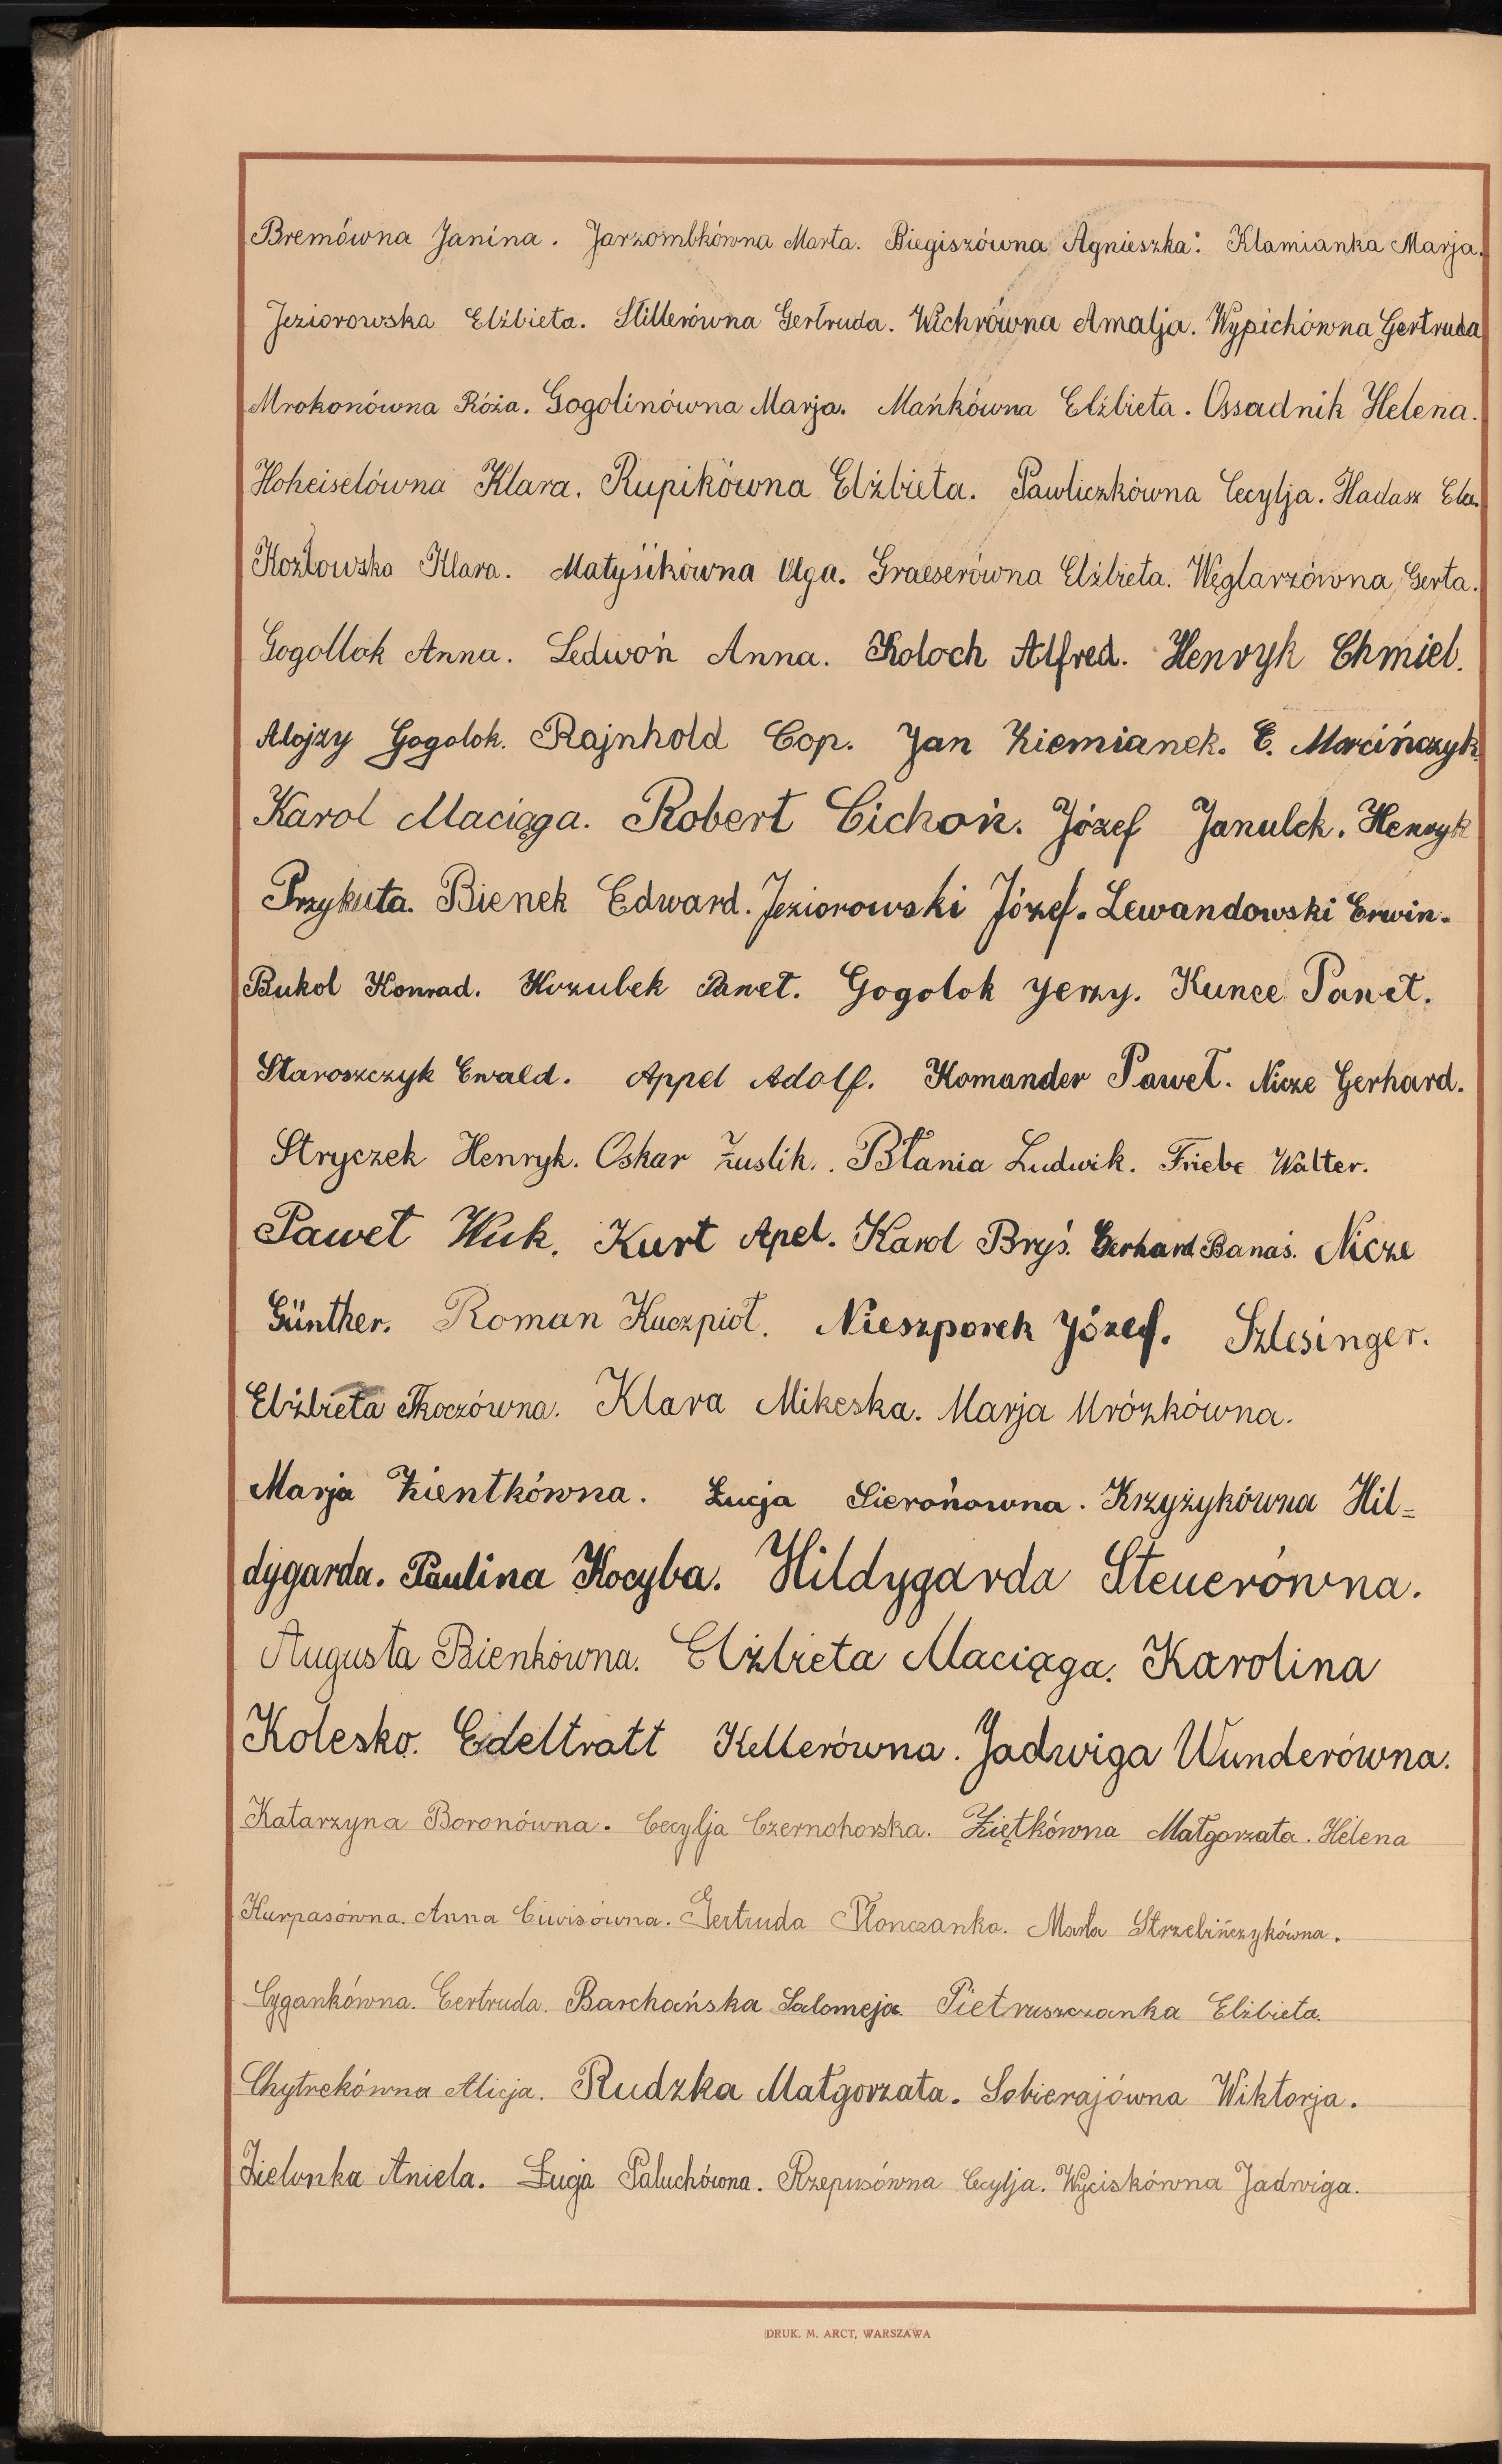 Bremówna Janina. Jarzombkówna Marta. Biegiszówna Agnieszka. Klamianka Marja.
Jeziorowska Elżbieta. Stillerówna Gertruda. Wichrówna Amalja. Wypichówna Gertruda
Mrokonówna Róża. Gogolinówna Marja. Mańkówna Elżbieta. Ossadnik Helena.
Hoheiselówna Klara. Rupikówna Elżbieta. Pawliczkówna Cecylja. Hadasz Ela.
Kozłowska Klara. Matysikówna Olga. Graeserówna Elżbieta. Węglarzówna Gerta.
Gogollok Anna. Ledwoń Anna. Koloch Alfred. Henryk Chmiel.
Alojzy Gogolok. Rajnhold Cop. Jan Ziemianek. E. Marcińczyk.
Karol Maciąga. Robert Cichoń. Józef Janulek. Henryk
Przykuta. Bienek Edward. Jeziorowski Józef. Lewandowski Erwin.
Bukol Konrad. Kozubek Paweł. Gogolok Jerzy. Kunce Paweł.
Staroszczyk Ewald. Appel Adolf. Komander Paweł. Nicze Gerhard.
Stryczek Henryk. Oskar Żuslik. Błania Ludwik. Friebe Walter.
Paweł Wuk. Kurt Apel. Karol Bryś. Gerhard Banaś. Nicze
Günther. Roman Kuczpioł. Nieszporek Józef. Szlesinger.
Elżbieta Tkoczówna. Klara Mikeska. Marja Mrózkówna.
Marja Zientkówna. Łucja Sierońowna. Krzyżykówna Hil=
dygarda. Paulina Kocyba. Hildygarda Steuerówna.
Augusta Bienkówna. Elżbieta Maciąga. Karolina
Kolesko. Edeltratt Kellerówna. Jadwiga Wunderówna.
Katarzyna Boronówna. Cecylja Czernohorska. Ziętkówna Małgorzata. Helena
Kurpasówna. Anna Ciwisówna. Gertruda Płonczanka. Marta Strzebińczykówna.
Cygankówna. Gertruda. Barchańska Salomeja. Pietruszczanka Elżbieta.
Chytrekówna Alicja. Rudzka Małgorzata. Sobierajówna Wiktorja.
Zielonka Aniela. Łucja Paluchówna. Rzepusówna Cecylja. Wyciskówna Jadwiga.
DRUK. M. ARCT, WARSZAWA